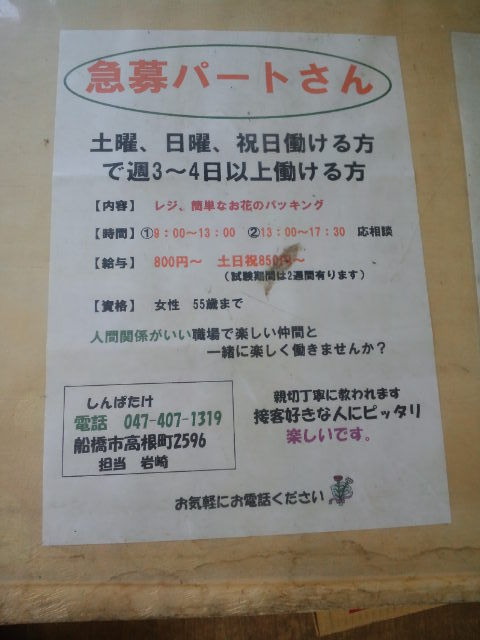 急募パートさん
土曜、日曜、祝日働ける方
で週3～4日以上働ける方
【内容】 レジ、簡単なお花のパッキング
【時間】①9：00～13：00 ②13：00～17：30 応相談
【給与】 800円～ 土日祝850円～
（試験期間は2週間有ります）
【資格】 女性 55歳まで
人間関係がいい職場で楽しい仲間と
一緒に楽しく働きませんか？
しんばたけ
電話 047-407-1319
船橋市高根町2596
担当 岩崎
親切丁寧に教われます
接客好きなんにピッタリ
楽しいです。
お気軽にお電話ください